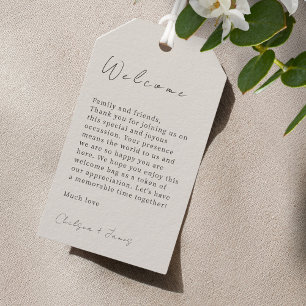 Welcome
Family and friends,
Thank you for joining us on
this special and joyous
occassion. Your presence
means the world to us and
we are so happy you are
here. We hope you enjoy this
welcome bag as a token of
our appreciation. Let's have
a memorable time together!
Much love
Chelsea + James